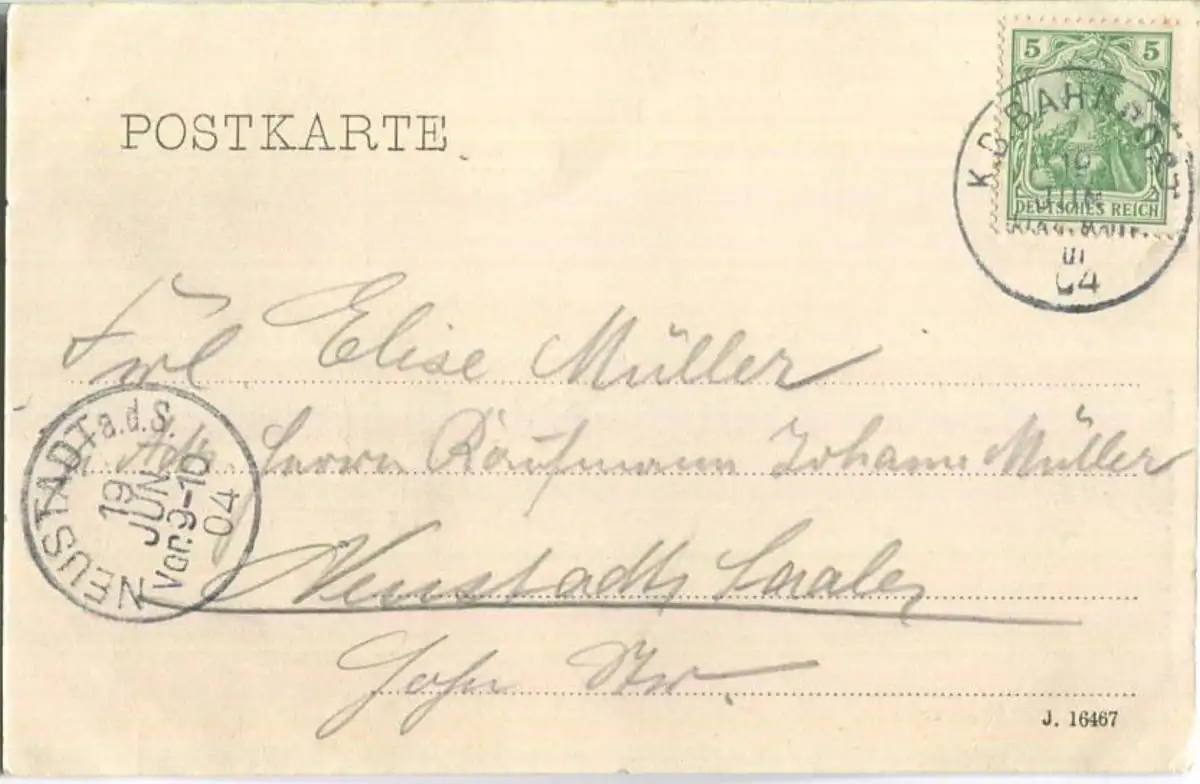 5 5
K.B.BAHNPOST
19
JUN
DEUTSCHES REICH
III
04
POSTKARTE
Frl Elise Müller
Adr. Herrn Kaufmann Johann Müller
Neustadt Saale
Hohe Str.
NEUSTADT a.d.S.
19
JUN
Vor.9-10
04
J. 16467